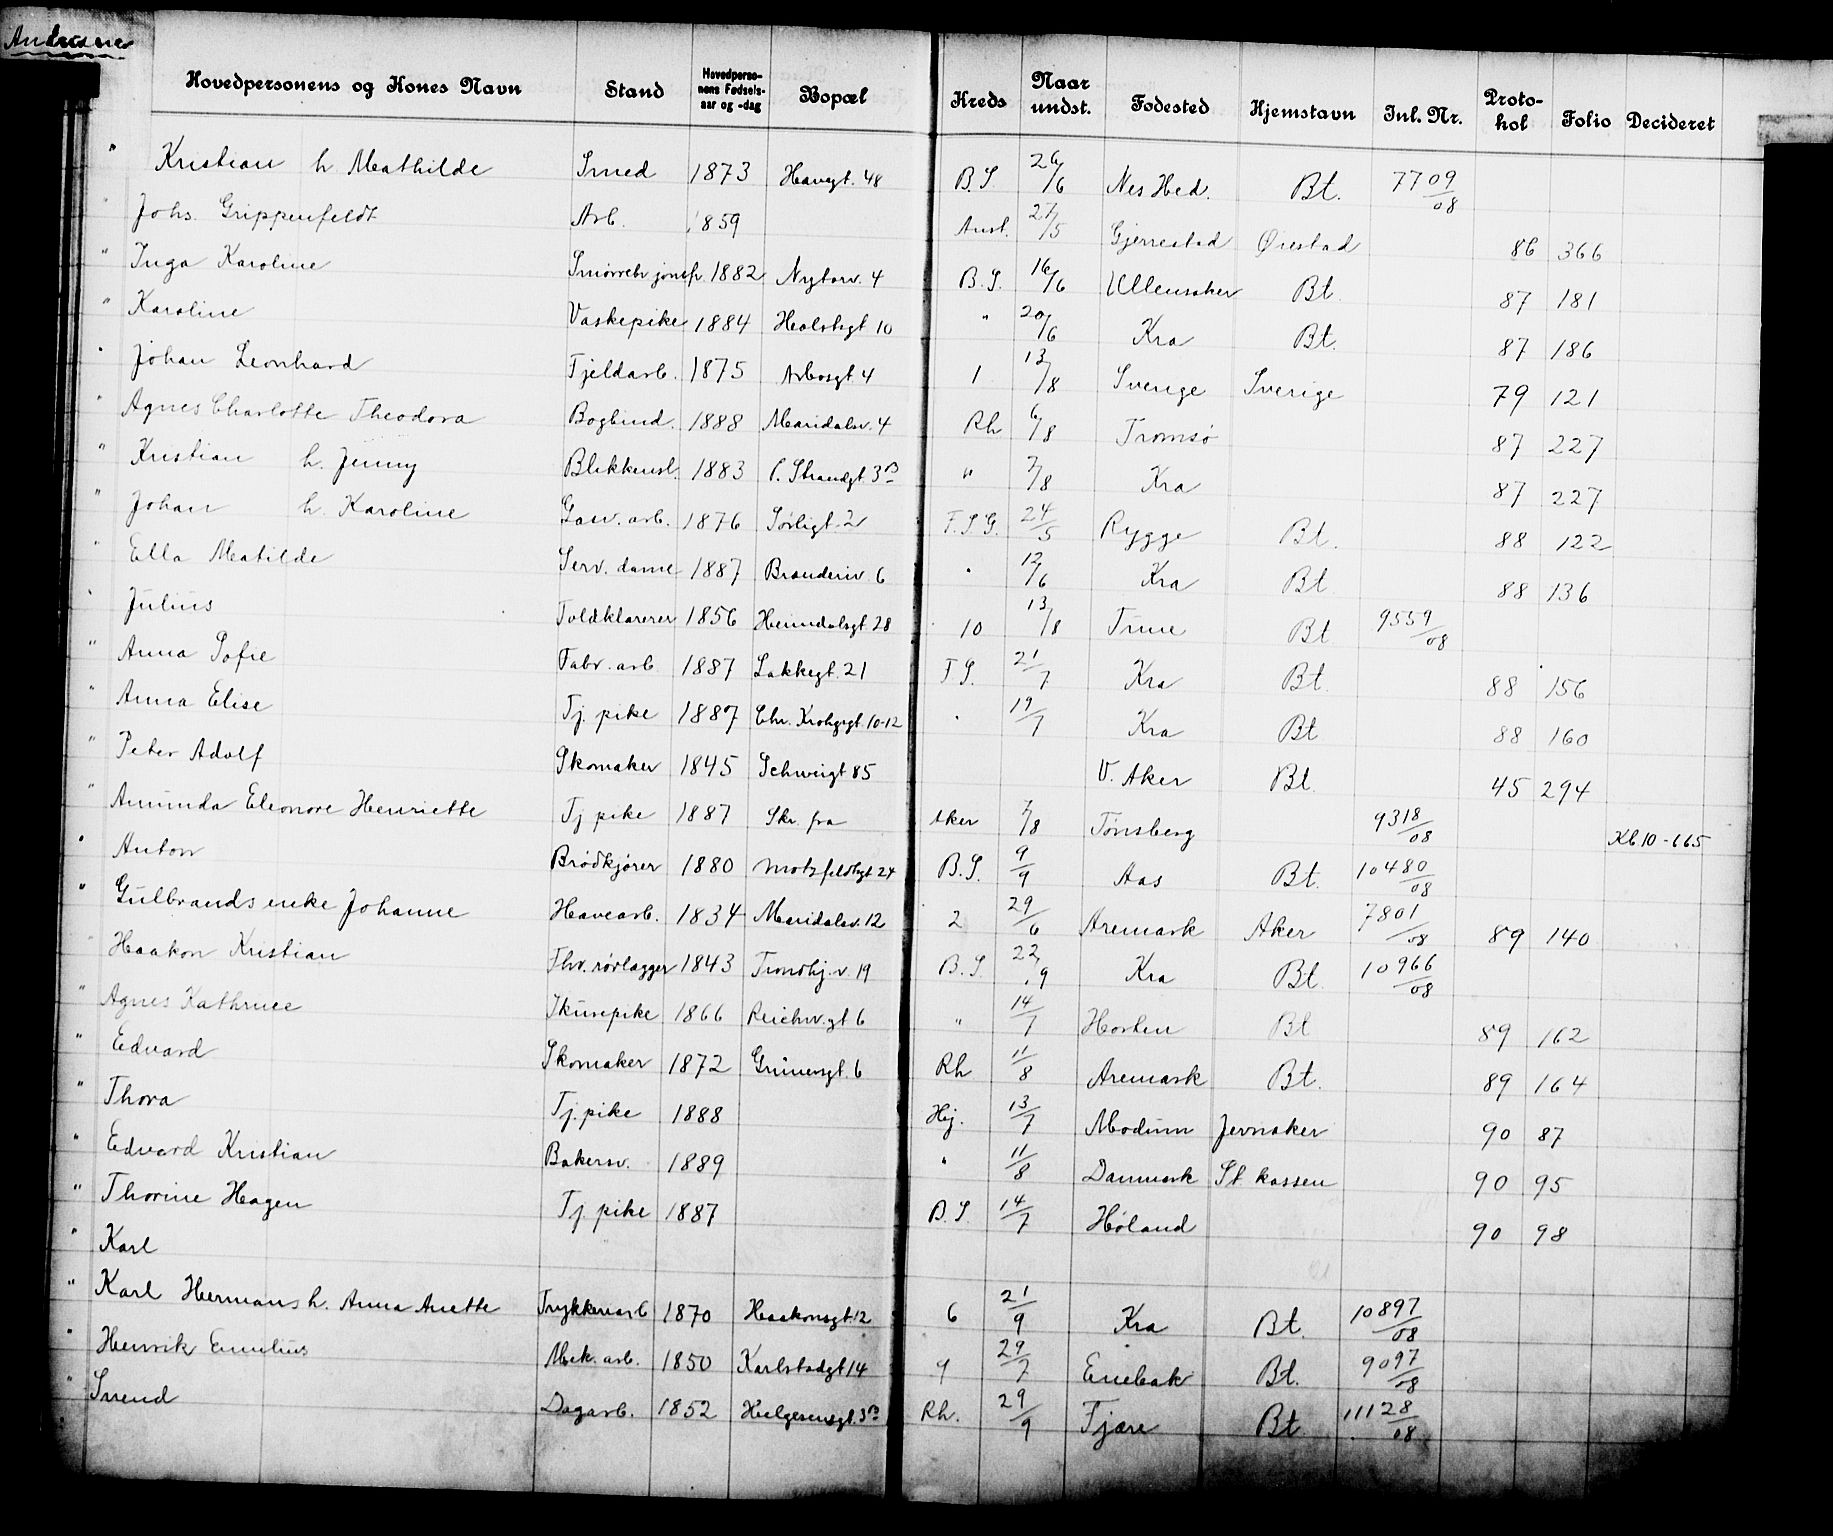 Andresne
Hovedpersonens og Kones Navn Stand Hovedperso-nens Fødsels-aar og -dag Bopæl Kreds Naar undst. Fødested Hjemstavn Inl. Nr. Proto-kol Folio Decideret
" Kristian h Mathilde Smed 1873 Havegt. 48 B.S. 26/6 Nes Hed. Bt. 7709/08
" Johs. Grippenfeldt Arb. 1859 Anst. 27/5 Gjerrestad Øiestad 86 366
" Inga Karoline Smørrebr jomfr. 1882 Nytorv. 4 B.S. 16/6 Ullensaker Bt. 87 181
" Karoline Vaskepike 1884 Holstsgt 10 " 20/6 Kra Bt. 87 186
" Johan Leonhard Fjeldarb. 1875 Arbosgt 4 1 13/8 Sverige Sverige 79 121
" Agnes Charlotte Theodora Bogbind. 1888 Maridalsv. 4 Rh 6/8 Tromsø 87 227
" Kristian h. Jenny Blikkensl. 1883 P. Strandgt 3B " 7/8 Kra 87 227
" Johan h. Karoline Gasv. arb. 1876 Sørligt. 2 F.S.G. 24/5 Rygge Bt. 88 122
" Ella Matilde Serv. dame 1887 Brinderiv. 6 " 12/6 Kra Bt. 88 136
" Julius Toldklarerer 1856 Heimdalsgt 28 10 13/8 Tune Bt 9559/08
" Anna Sofie Fabr. arb 1887 Lakkegt. 21 F S. 21/7 Kra Bt. 88 156
" Anna Elise Tj. pike 1887 Chr. Krohgsgt 10-12 " 19/7 Kra Bt 88 160
" Peter Adolf Skomaker 1845 Schweigt 85 V. Aker Bt. 45 294
" Amunda Eleonore Henriette Tj pike 1887 Skr. fra Aker 7/8 Tønsberg 9318/08 Kb 10-165
" Anton Brødkjører 1880 Motzfeldtsgt 24 B.S. 9/9 Aas Bt. 10480/08
" Gulbrands enke Johanne Havearb. 1834 Maridalsv. 12 2 29/6 Aremark Aker 7801/08 89 140
Haakon Kristian Fhv. rørlægger 1843 Trondhj. v. 19 B.S. 22/9 Kra Bt 10966/08
" Agnes Kathrine Skurepike 1866 Reichw. gt 6 " 14/7 Horten Bt 89 162
" Edvard Skomaker 1872 Grünersgt. 6 Rh 11/8 Aremark Bt. 89 164
" Thora Tj. pike 1888 Hj. 13/7 Modum Jevnaker 90 87
" Edvard Kristian Bakersv. 1889 " 11/8 Danmark St kassen 90 95
" Thorine Hagen Tj. pike 1887 B.S. 14/7 Høland 90 98
" Karl
" Karl Hermans h. Anna Anette Trykkeriarb 1870 Haakonsgt. 12 6 21/9 Kra Bt. 10897/08
" Henrik Emilius Mek. arb. 1850 Karlstadgt 14 9 29/7 Enebak Bt. 9097/08
" Svend Dagarb. 1852 Helgesensgt. 3B Rh. 29/9 Fjære Bt 11128/08